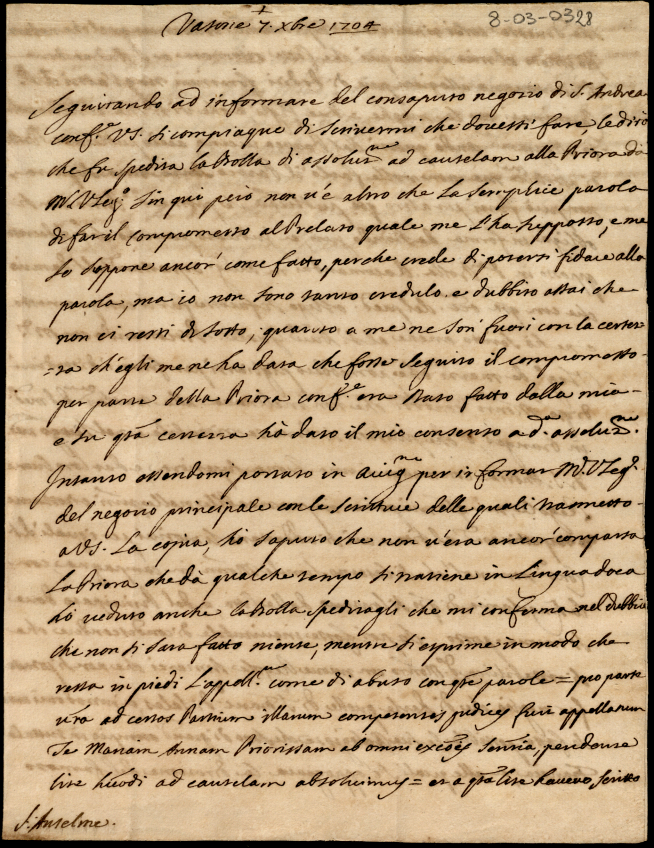 Vasone 7. Xbre 1704
8-03-0328
Seguitando ad informare del consaputo negozio di S. Andrea
conf.e VS. si compiaque di scrivermi che dovessi fare, le dirò
che fu spedita la Bolla di assoluz.ne ad cautelam alla Priora da
M.r V.Leg.o sin qui però non v'è altro che la semplice parola
di far il compromesso al Prelato quale me l'ha supposto, e me
lo suppone ancor come fatto, perche crede di potersi fidare alla
parola, ma io non sono tanto credulo e dubbito assai che
non ci resti di sotto, quanto a me ne son fuori con la certez-
=za ch'egli me ne ha data che fosse seguito il compromesso
per parte della Priora conf.e era stato fatto dalla mia
e su q.ta certezza hò dato il mio consenso a d.a assoluz.ne.
Intanto essendomi portato in Avig.ne per informar M.r V.Leg.o
del negozio principale con le scritture delle quali trasmetto
a VS. La copia, hò saputo che non v'era ancor comparsa
La Priora che dà qualche tempo si trattiene in Linguadoca
hò veduto anche la Bolla speditagli che mi conferma nel dubbio
che non si sarà fatto niente, mentre si esprime in modo che
resta in piedi l'appell.ne come di abuso con q.te parole = pro parte
v.ra ad certos Partium illarum competentes judices fuit appellatum
Te Mariam Annam Priorissam ab omni excões senña, pendente
lite hmõdi ad cautelam absolvimus = era q.ta lite havevo scritto
S.r Anselme.